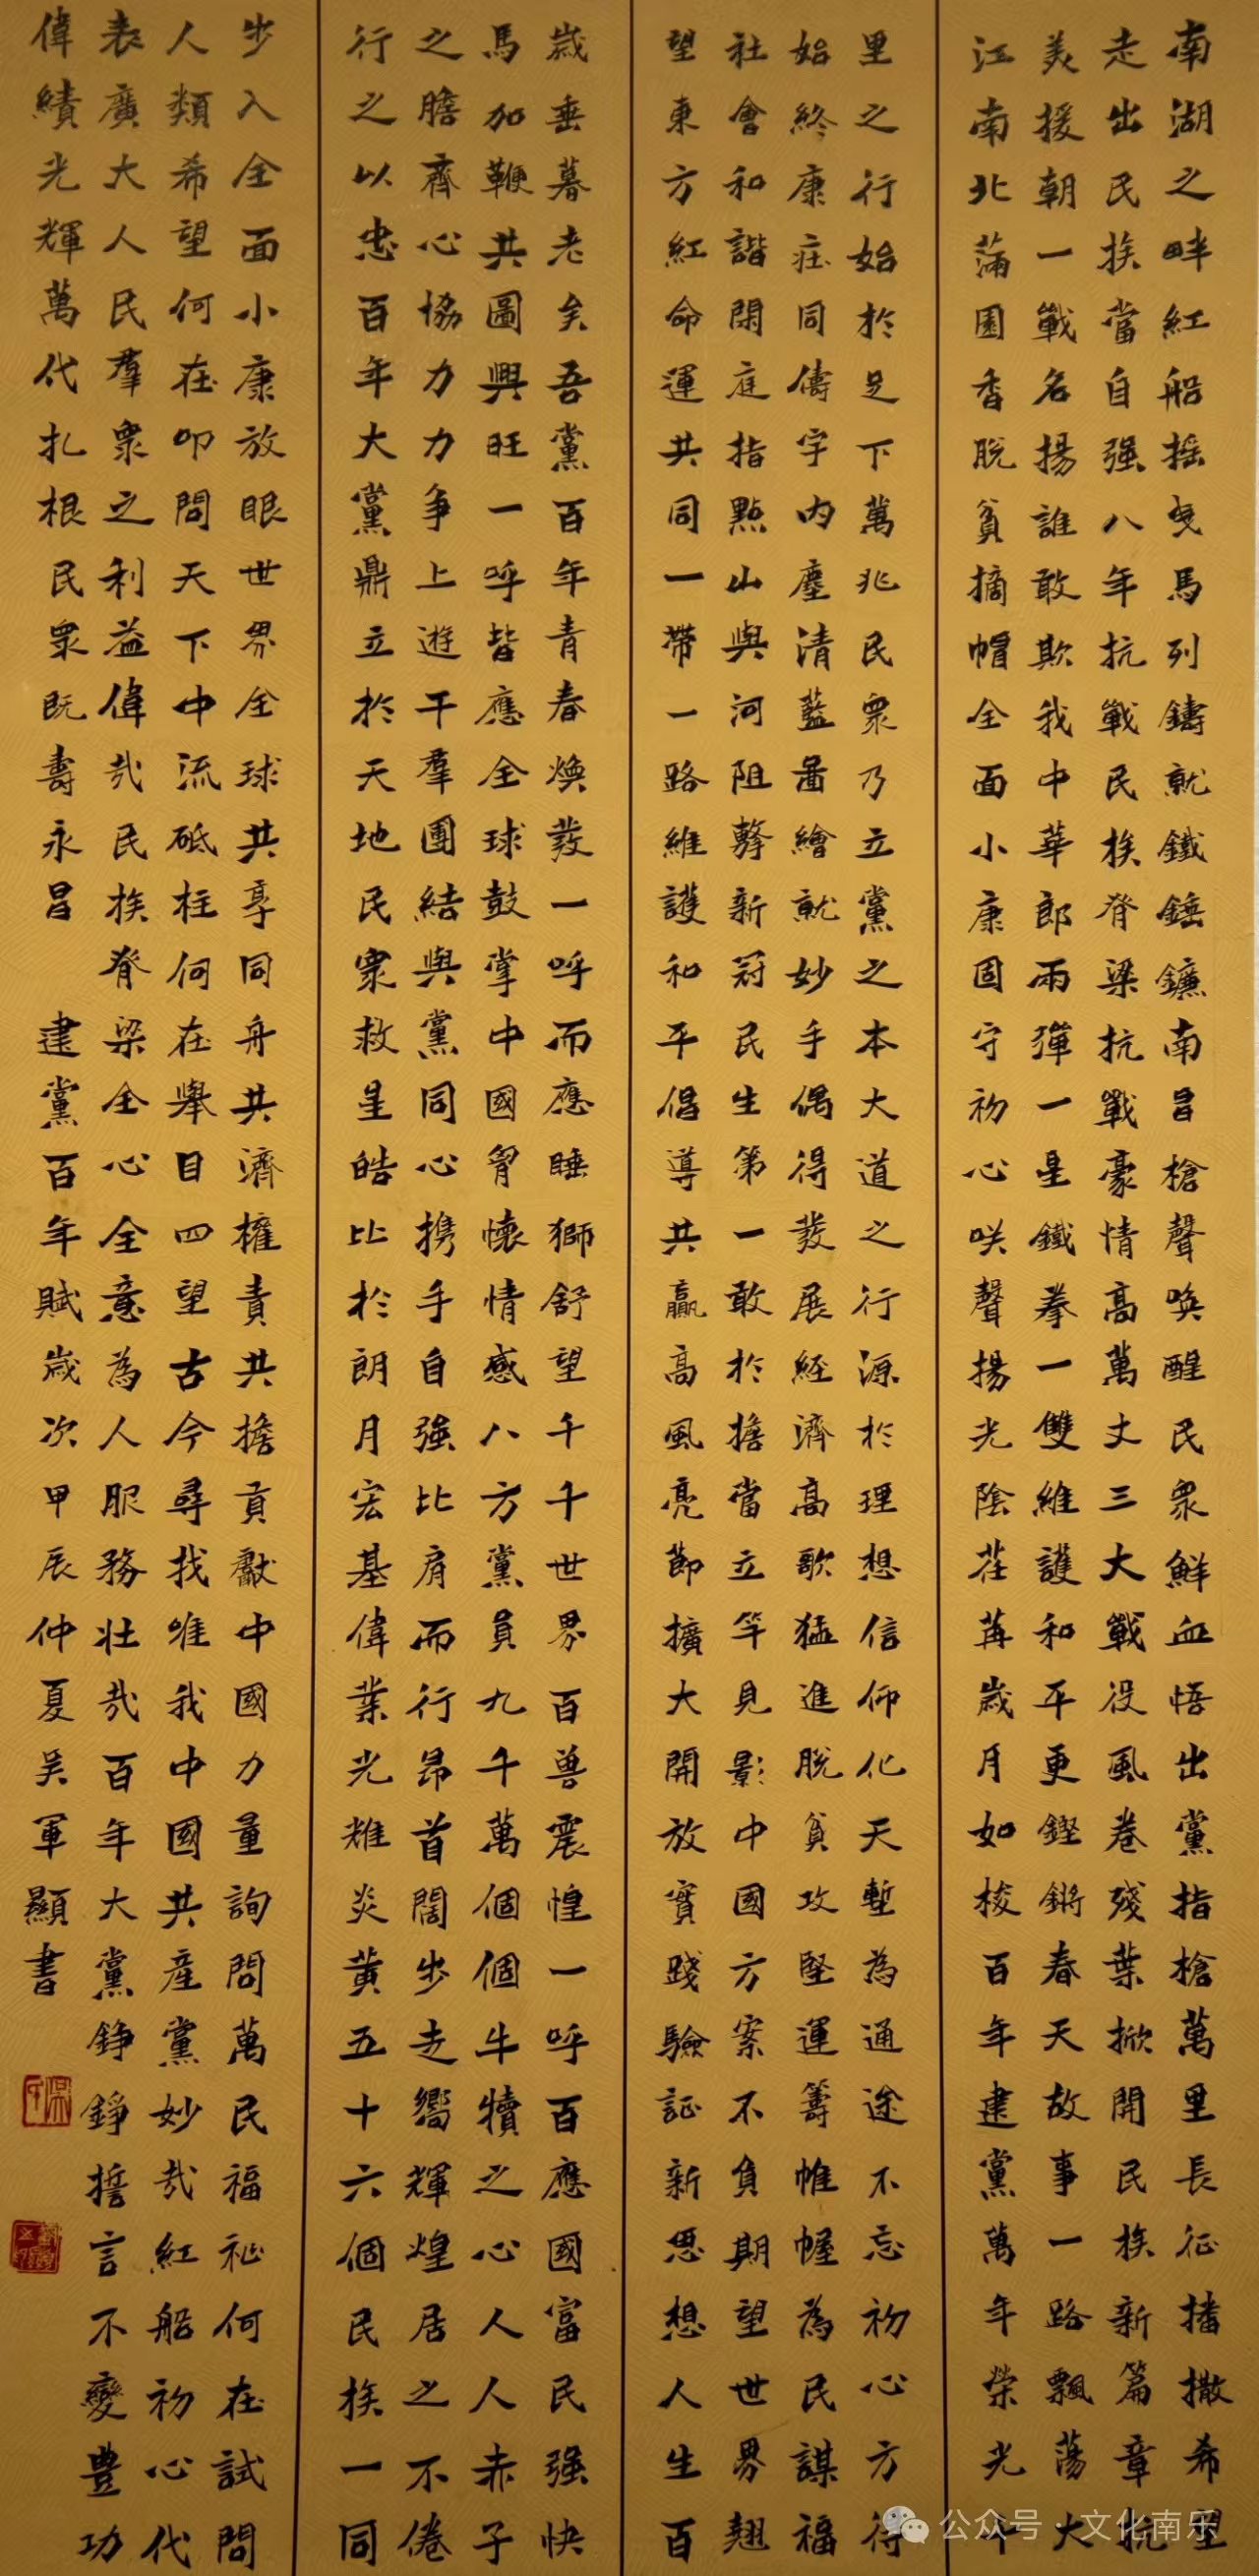 南湖之畔紅船摇曳馬列鑄就鐵錘鐮南昌槍聲唤醒民衆鮮血悟出黨指槍萬里長征播撒希望
走出民族當自强八年抗戰民族脊梁抗戰豪情高萬丈三大戰役風卷殘葉掀開民族新篇章抗
美援朝一戰名揚誰敢欺我中華郎兩彈一星鐵拳一雙維護和平更鏗鏘春天故事一路飄蕩大
江南北滿園香脱貧摘帽全面小康固守初心咲聲揚光陰荏苒歲月如梭百年建黨萬年榮光千
里之行始於足下萬兆民衆乃立黨之本大道之行源於理想信仰化天塹為通途不忘初心方得
始終康莊同儔宇内塵清藍啚繪就妙手偶得發展經濟高歌猛進脱貧攻堅運籌帷幄為民謀福
社會和諧閑庭指點山與河阻擊新冠民生第一敢於擔當立竿見影中國方案不負期望世界翹
望東方紅命運共同一帶一路維護和平倡導共贏高風亮節擴大開放實踐驗証新思想人生百
歲垂暮老矣吾黨百年青春焕發一呼而應睡獅舒望千千世界百兽震惶一呼百應國富民强快
馬加鞭共圖興旺一呼皆應全球鼓掌中國胷懷情感八方黨員九千萬個個牛犢之心人人赤子
之膽齊心協力力争上遊干羣團結與黨同心携手自强比肩而行昂首闊步走嚮輝煌居之不倦
行之以忠百年大黨鼎立於天地民衆救星皓比於朗月宏基偉業光耀炎黄五十六個民族一同
步入全面小康放眼世界全球共享同舟共濟權責共擔貢獻中國力量詢問萬民福祉何在試問
人類希望何在叩問天下中流砥柱何在舉目四望古今尋找唯我中國共産黨妙哉紅船初心代
表廣大人民羣衆之利益偉哉民族脊梁全心全意為人服務壯哉百年大黨錚錚誓言不變豊功
偉績光輝萬代扎根民衆既壽永昌 建黨百年賦歲次甲辰仲夏吴軍顯書
公众号 · 文化南乐